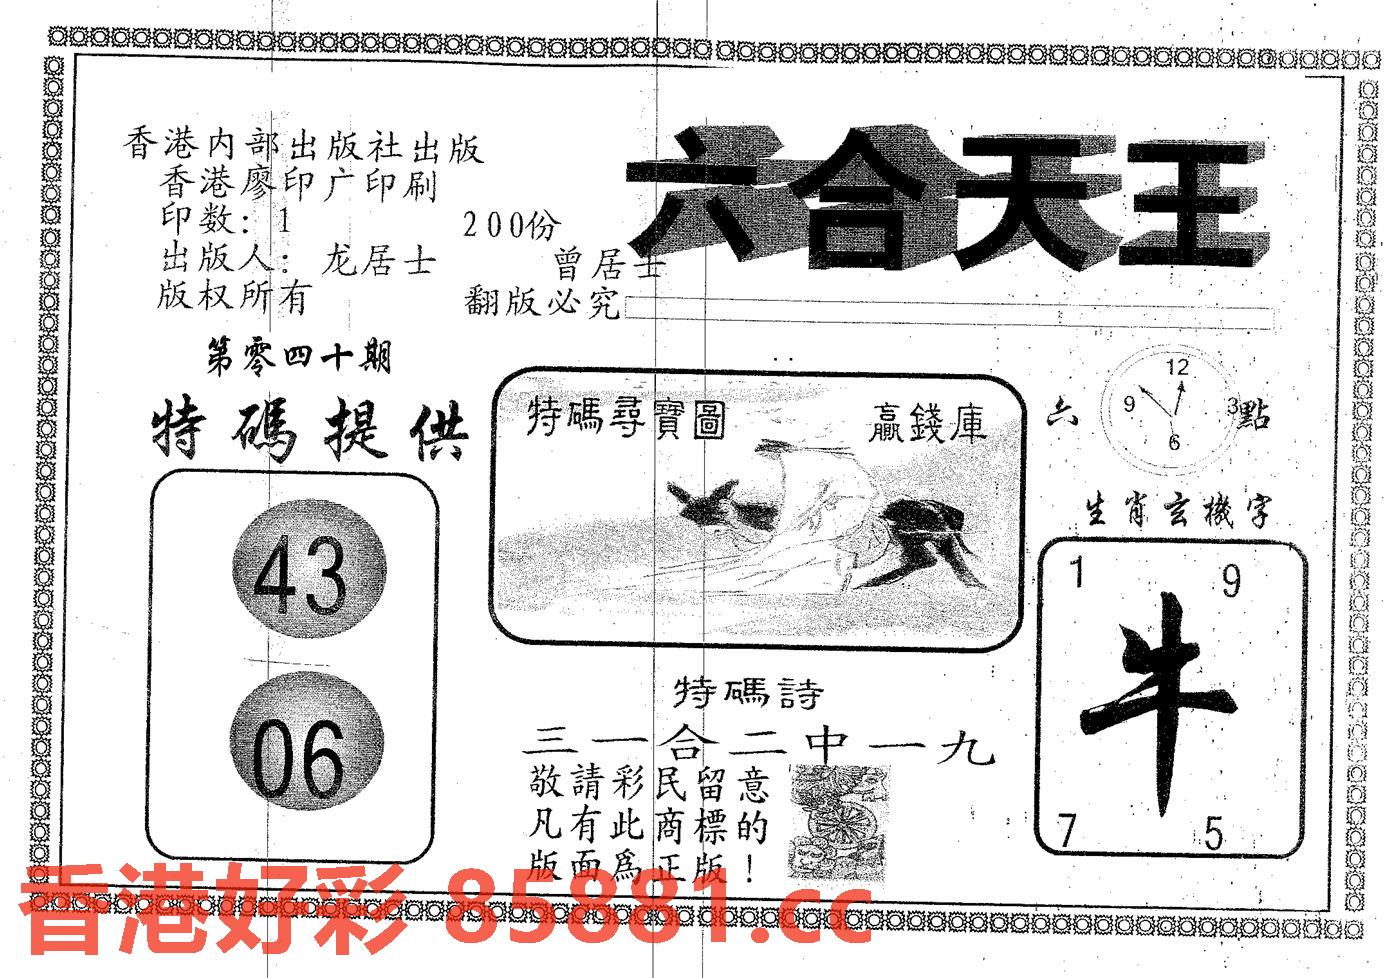 香港内部出版社出版
香港廖印广印刷
印数：1 200份
出版人：龙居士 曾居士
版权所有 翻版必究
六合天王
第零四十期
特碼提供
43
06
特碼尋寶圖 贏錢庫
六 點
12
9 3
6
生肖玄機字
1 9
牛
7 5
特碼詩
三一合二中一九
敬請彩民留意
凡有此商標的
版面為正版！
香港好彩 85881.cc